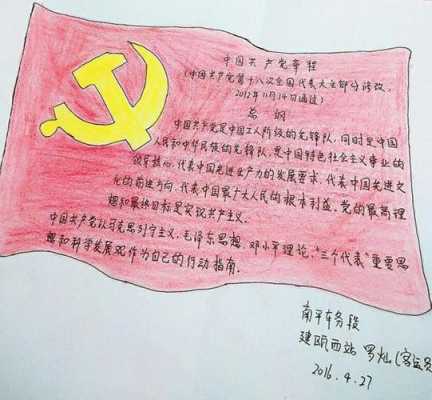 中国共产党章程
(中国共产党第十八次全国代表大会部分修改,
2012年11月14日通过)
总纲
中国共产党是中国工人阶级的先锋队,同时是中国
人民和中华民族的先锋队,是中国特色社会主义事业的
领导核心,代表中国先进生产力的发展要求,代表中国先进文
化的前进方向,代表中国最广大人民的根本利益。党的最高理
想和最终目标是实现共产主义。
中国共产党以马克思列宁主义、毛泽东思想、邓小平理论、"三个代表"重要思
想和科学发展观作为自己的行动指南。
南平车务段
建瓯西站 罗灿(客运员
2016.4.27